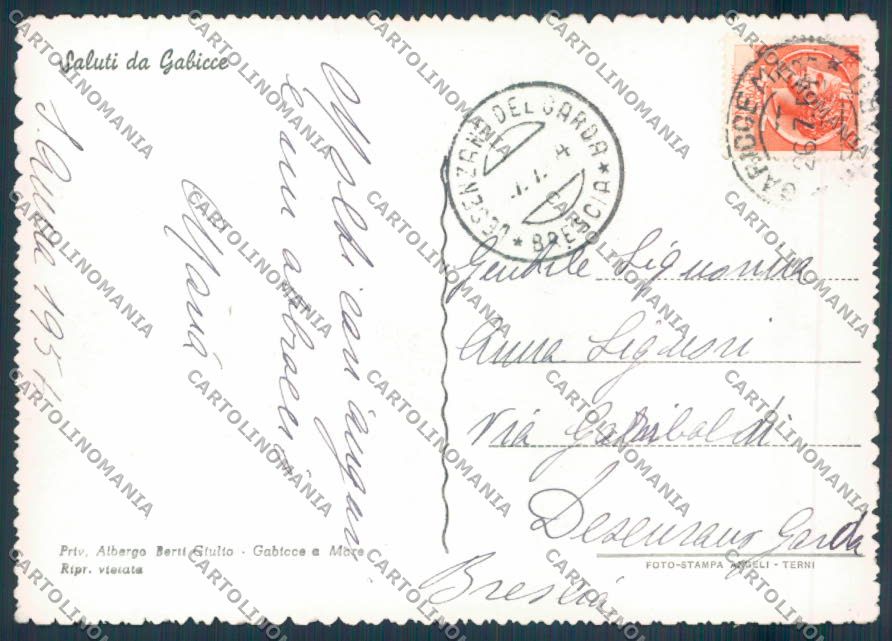 Saluti da Gabicce
S. Anna 195
Molti cari auguri
cari abbracci
Maria
DESENZANO DEL GARDA
* BRESCIA *
GABICCE M
26 7 5
Gentile Signorina
Anna Liguori
Via Garibaldi
Desenzano Garda
Brescia
Priv. Albergo Berti Giulio - Gabicce a Mare
Ripr. vietata
FOTO-STAMPA ANGELI - TERNI
CARTOLINOMANIA